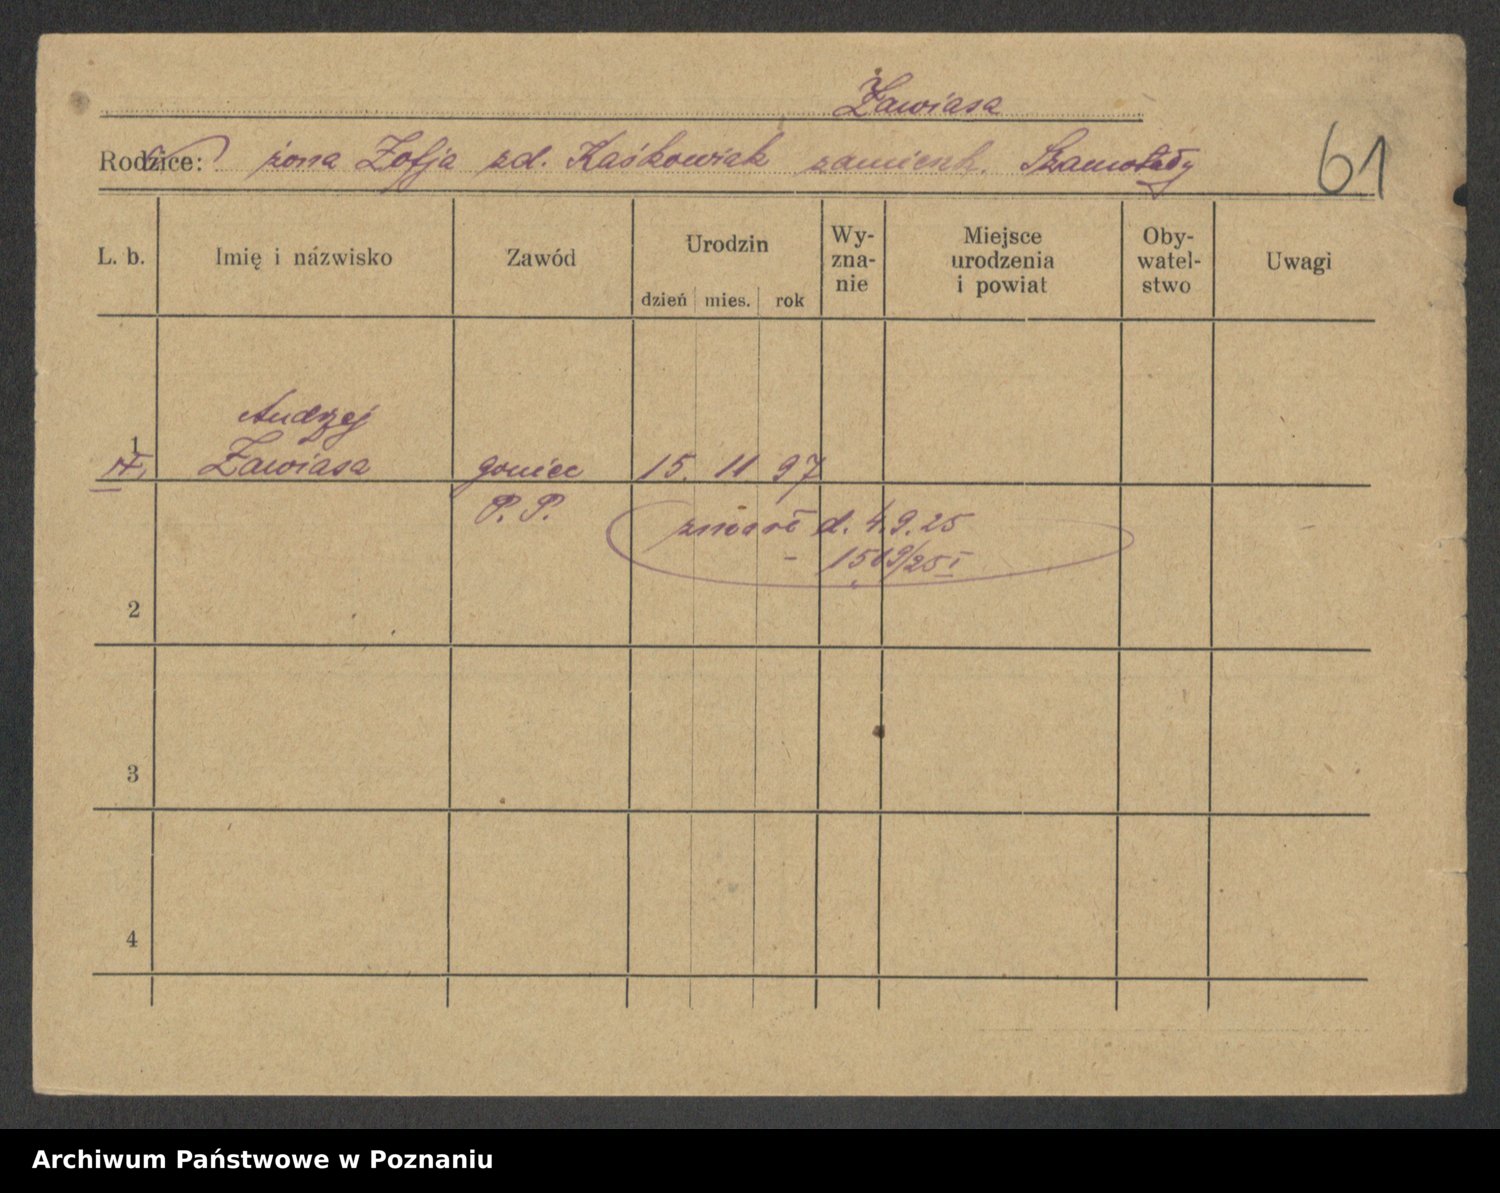 Zawiasa
Rodzice: żona Zofja zd. Kaśkowiak zamieszk. Szamotuły
61
L. b. Imię i názwisko Zawód Urodzin dzień mies. rok Wy-zna-nie Miejsce urodzenia i powiat Oby-watel-stwo Uwagi
Andrzej
1 Zawiasa goniec 15. 11 97
P. P.
zmarł d. 4.9.25
- 1519/25 I
2
3
4
Archiwum Państwowe w Poznaniu